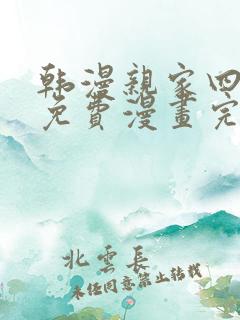 韩漫親家四
免費漫畫完
北雲長
未任同意禁止转载